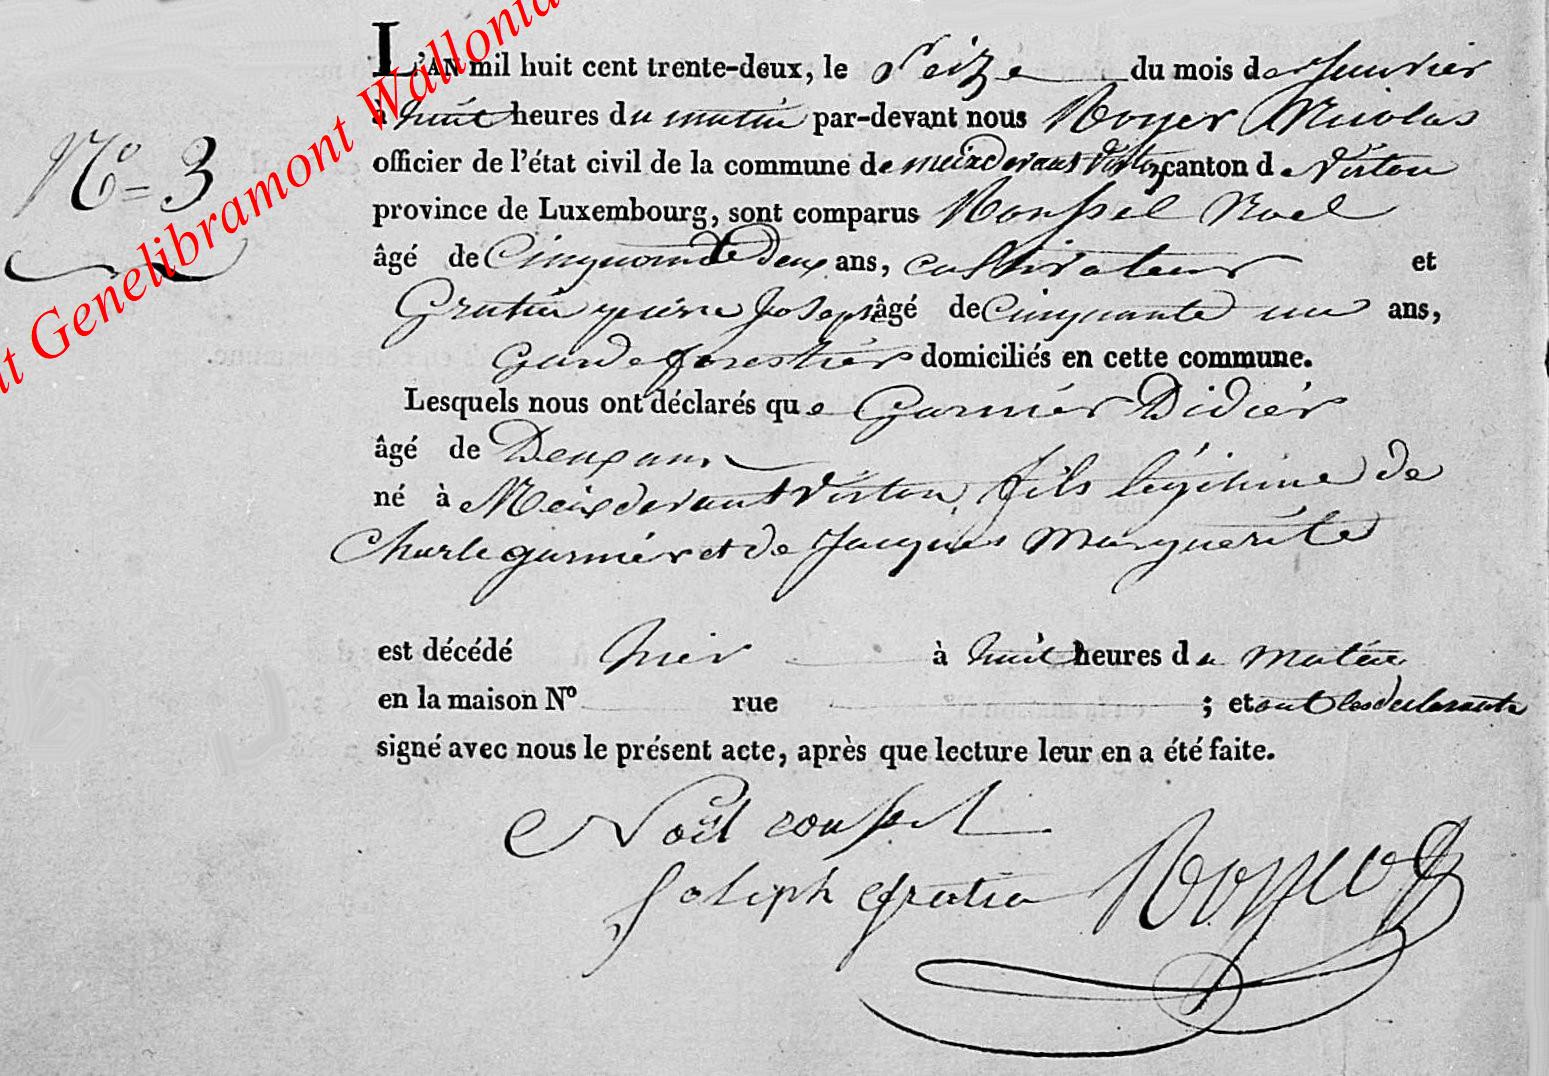 L'AN mil huit cent trente-deux, le Seize du mois de Janvier
à huit heures du matin par-devant nous Royer Nicolas
officier de l'état civil de la commune de meixdevant Virton canton de Virton
province de Luxembourg, sont comparus Roussel Noel
âgé de Cinquante Deux ans, cultivateur et
Gratia pierre Joseph âgé de Cinquante un ans,
Garde forestier domiciliés en cette commune.
Lesquels nous ont déclarés que Garnier Didier
âgé de Deux ans
né à Meix devant Virton, fils légitime de
Charle garnier et de Jacques Marguerite
est décédé hier à huit heures du matin
en la maison Nº rue ; et ont les declarants
signé avec nous le présent acte, après que lecture leur en a été faite.
Noël
Joseph gratia Royer
Nº 3
Genelibramont Wallonia